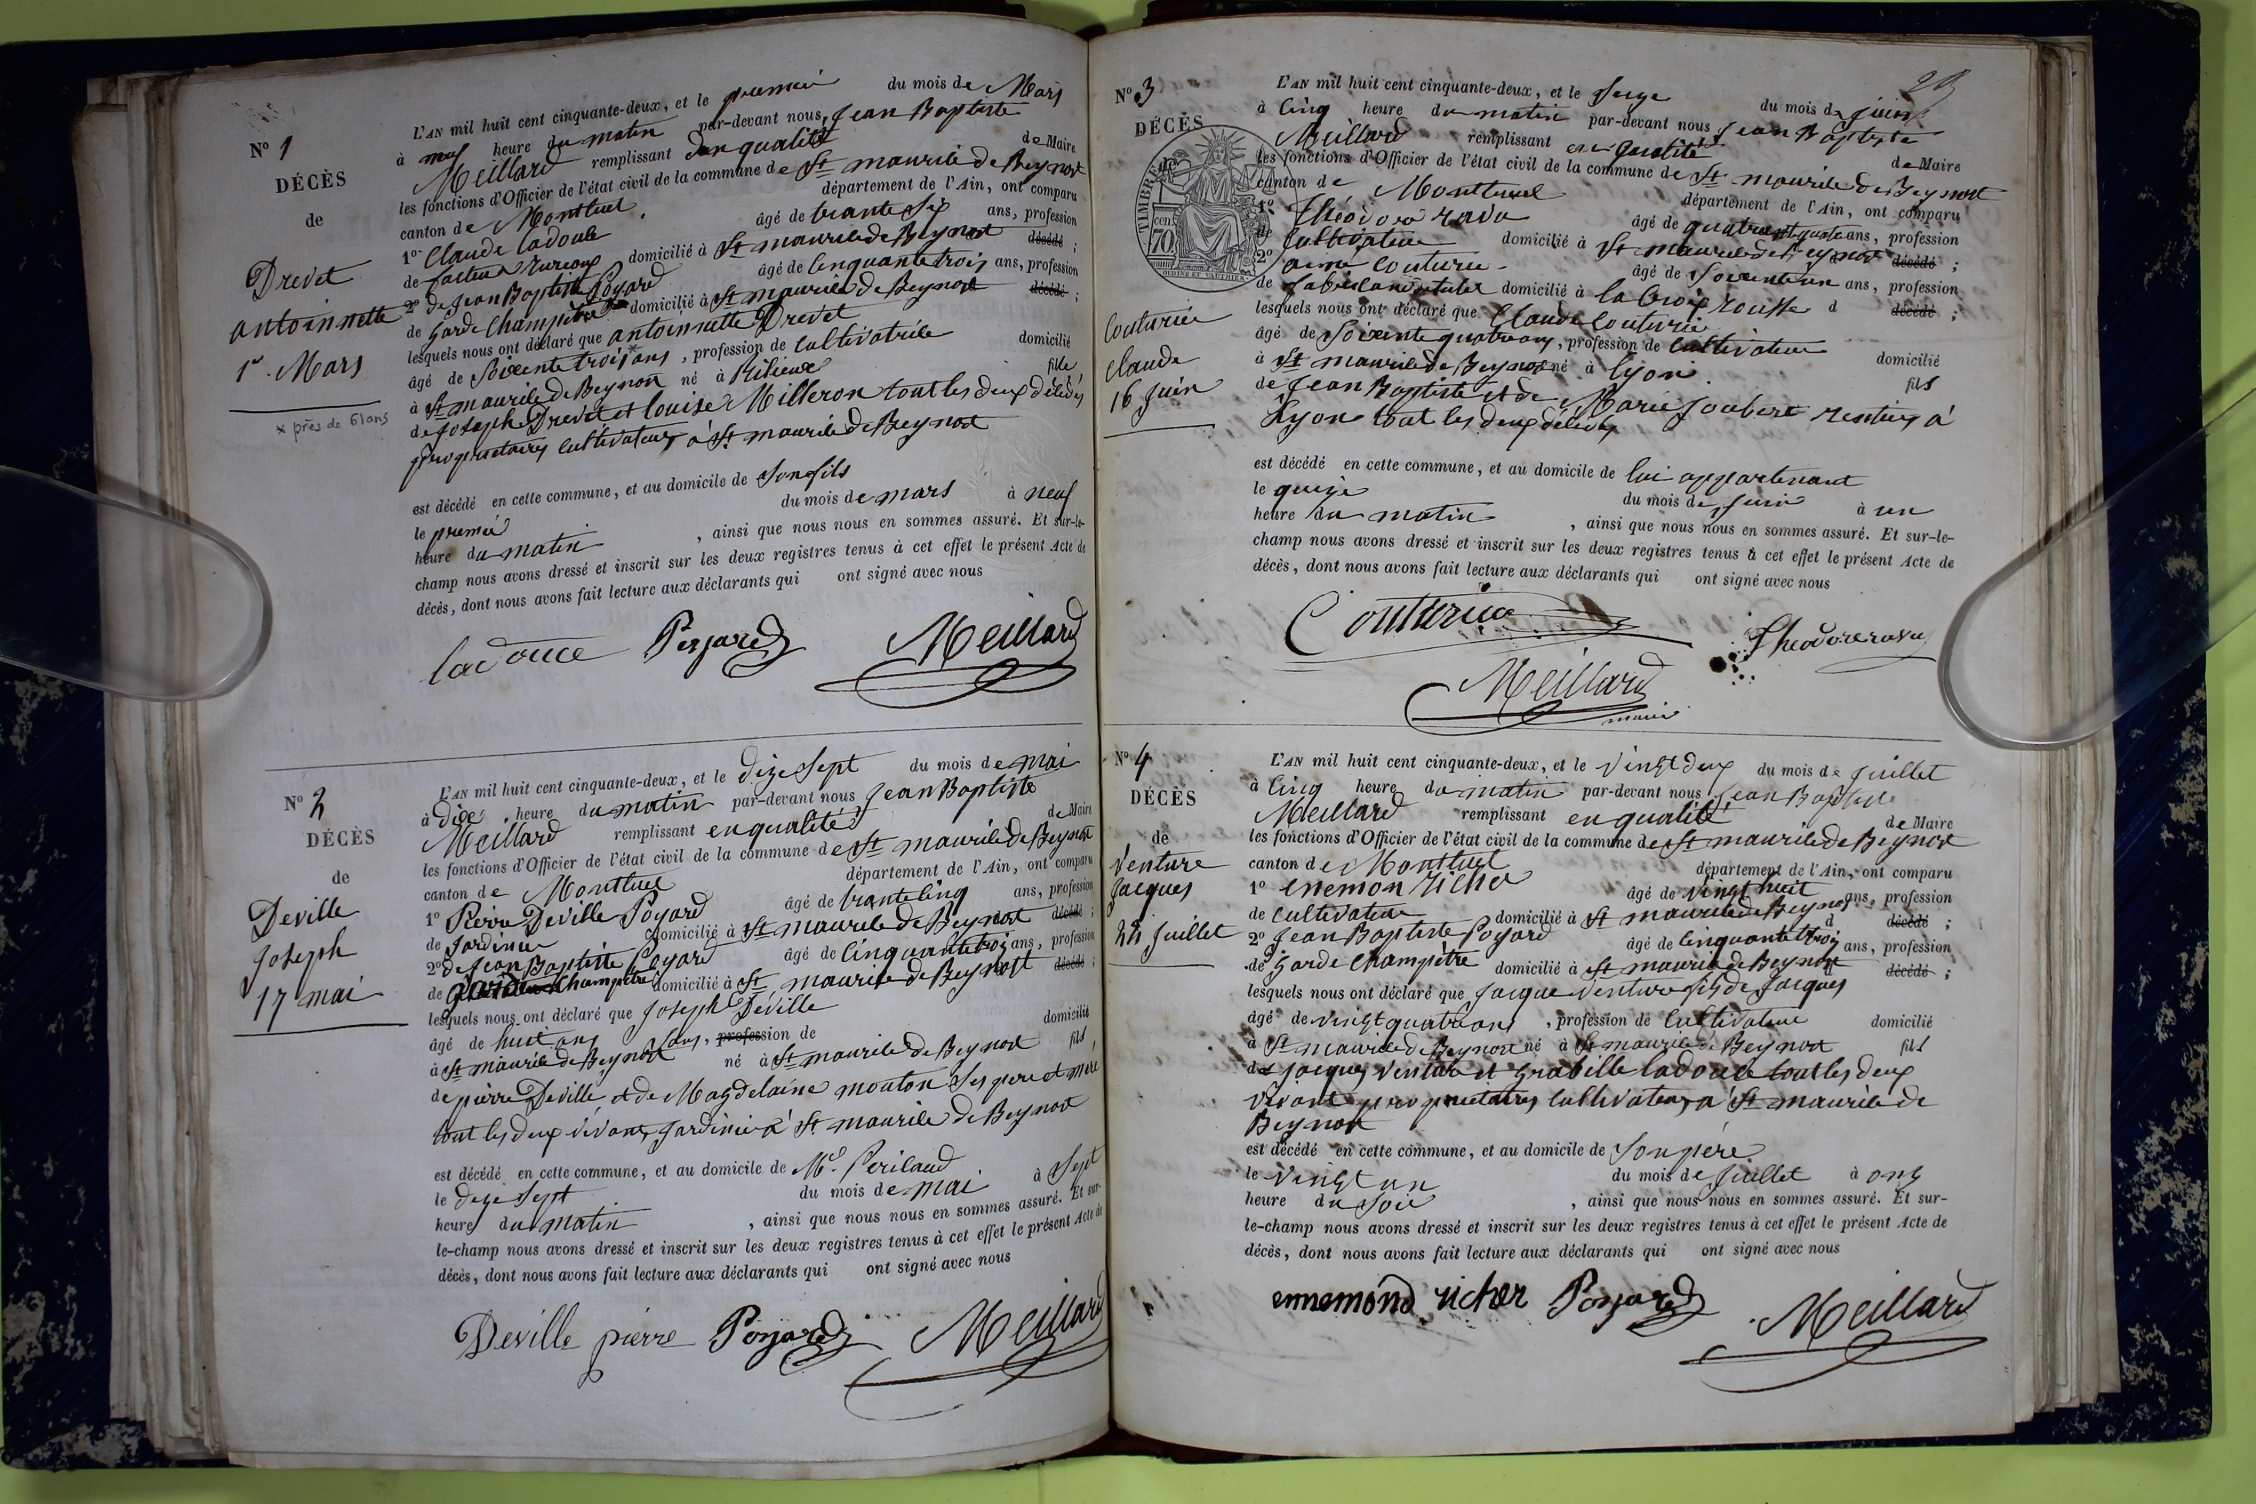 N° 1
DÉCÈS
de
Drevet
antoinnette
1er Mars
x près de 61 ans
L'AN mil huit cent cinquante-deux, et le premier du mois de Mars
à neuf heure du matin par-devant nous, Jean Baptiste
Meillard remplissant en qualité de Maire
les fonctions d'Officier de l'état civil de la commune de St maurice de Beynost
canton de Montluel département de l'Ain, ont comparu
1° Claude ladouce âgé de trante six ans, profession
de facteur ruraux domicilié à St maurice de Beynost décédé ;
2° de Jean Baptiste Poyard âgé de cinquante trois ans, profession
de Garde champêtre domicilié à St maurice de Beynost décédé ;
lesquels nous ont déclaré que antoinnette Drevet
âgé de soixente trois ans, profession de cultivatrice domicilié
à St maurice de Beynost né à Rilieux fille
de Joseph Drevet et louise Milleron tout les deux décédés
propriettaires cultivateurs à St maurice de Beynost
est décédé en cette commune, et au domicile de son fils
le premier du mois de mars à neuf
heure du matin, ainsi que nous nous en sommes assuré. Et sur-le-
champ nous avons dressé et inscrit sur les deux registres tenus à cet effet le présent Acte de
décès, dont nous avons fait lecture aux déclarants qui ont signé avec nous
ladouce Poyard Meillard
N° 2
DÉCÈS
de
Deville
Joseph
17 mai
L'AN mil huit cent cinquante-deux, et le dize sept du mois de mai
à dix heure du matin par-devant nous Jean Baptiste
Meillard remplissant en qualité de Maire
les fonctions d'Officier de l'état civil de la commune de St maurice de Beynost
canton de Montluel département de l'Ain, ont comparu
1° Pierre Deville Poyard âgé de trante cinq ans, profession
de Jardinier domicilié à St maurice de Beynost décédé ;
2° de Jean Baptiste Poyard âgé de cinquante trois ans, profession
de garde champêtre domicilié à St maurice de Beynost décédé ;
lesquels nous ont déclaré que Joseph Deville
âgé de huit ans sans, profession de domicilié
à St maurice de Beynost né à St maurice de Beynost fils
de pierre Deville et de Magdelaine mouton ses pere et mere
tout les deux vivants jardinier à St maurice de Beynost
est décédé en cette commune, et au domicile de Mr Perilaud
le dize sept du mois de mai à sept
heures du matin, ainsi que nous nous en sommes assuré. Et sur-
le-champ nous avons dressé et inscrit sur les deux registres tenus à cet effet le présent Acte de
décès, dont nous avons fait lecture aux déclarants qui ont signé avec nous
Deville pierre Poyard Meillard
N° 3
DÉCÈS
TIMBRE
70 cen
Couturier
claude
16 Juin
L'AN mil huit cent cinquante-deux, et le seize du mois de juin
à cinq heure du matin par-devant nous Jean Baptiste
Meillard remplissant en qualité de Maire
les fonctions d'Officier de l'état civil de la commune de St maurice de Beynost
canton de Montluel département de l'Ain, ont comparu
1° Théodore ravu âgé de quatre ans, profession
de Cultivateur domicilié à St maurice de Beynost décédé ;
2° aimé couturier âgé de soixente un ans, profession
de domicilié à la Croix rousse d décédé ;
lesquels nous ont déclaré que Claude Couturier
âgé de soixente quatre ans, profession de cultivateur domicilié
à St maurice de Beynost né à lyon fils
de Jean Baptiste et de Marie Joubert rentiers à
Lyon tout les deux décédés
est décédé en cette commune, et au domicile de lui appartenant
le quize du mois de juin à un
heure du matin, ainsi que nous nous en sommes assuré. Et sur-le-
champ nous avons dressé et inscrit sur les deux registres tenus à cet effet le présent Acte de
décès, dont nous avons fait lecture aux déclarants qui ont signé avec nous
Couturier Theodore ravu
Meillard
maire
N° 4
DÉCÈS
de
Venture
Jacques
22 Juillet
L'AN mil huit cent cinquante-deux, et le vingt deux du mois de Juillet
à cinq heure du matin par-devant nous Jean Baptiste
Meillard remplissant en qualité de Maire
les fonctions d'Officier de l'état civil de la commune de St maurice de Beynost
canton de Montluel département de l'Ain, ont comparu
1° enemon richer âgé de vingt huit ans, profession
de cultivateur domicilié à St maurice de Beynost d décédé ;
2° Jean Baptiste Poyard âgé de cinquante trois ans, profession
de Garde champêtre domicilié à St maurice de Beynost décédé ;
lesquels nous ont déclaré que Jacque Venture fils de Jacques
âgé de vingt quatre ans, profession de cultivateur domicilié
à St maurice de Beynost né à St maurice de Beynost fils
de jacques venture et Grabille ladouce tout les deux
vivant propriettaires cultivateurs à St maurice de
Beynost
est décédé en cette commune, et au domicile de son père
le vingt un du mois de juillet à onz
heure du soir, ainsi que nous nous en sommes assuré. Et sur-
le-champ nous avons dressé et inscrit sur les deux registres tenus à cet effet le présent Acte de
décès, dont nous avons fait lecture aux déclarants qui ont signé avec nous
ennemond richer Poyard Meillard